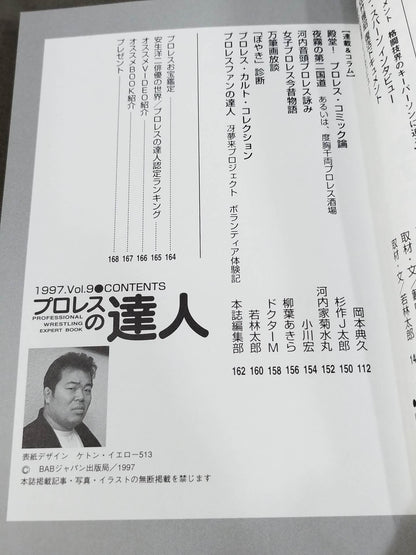 メント 格闘技界のキーパーソンに迫る
スーパー・インタビュー
取材・文／
取材・文／若林太郎
【連載&コラム】
殿堂！ プロレス・コミック論
岡本典久 112
夜霧の第二国道 あるいは、度胸千両プロレス酒場
杉作J太郎 150
河内音頭プロレス詠み
河内家菊水丸 152
女子プロレス今昔物語
小川宏 154
万華画放談
柳葉あきら 156
「ぼやき」診断
ドクターM 158
プロレス・カルト・コレクション
若林太郎 160
プロレスファンの達人 冴夢来プロジェクト ボランティア体験記
本誌編集部 162
プロレスお宝鑑定 164
安生洋二俳優の世界／プロレスの達人認定ランキング 165
オススメVIDEO紹介 166
オススメBOOK紹介 167
プレゼント 168
1997.Vol.9●CONTENTS
プロレスの達人
PROFESSIONAL
WRESTLING
EXPERT BOOK
表紙デザイン ケトン・イエロー513
© BABジャパン出版局／1997
本誌掲載記事・写真・イラストの無断掲載を禁じます